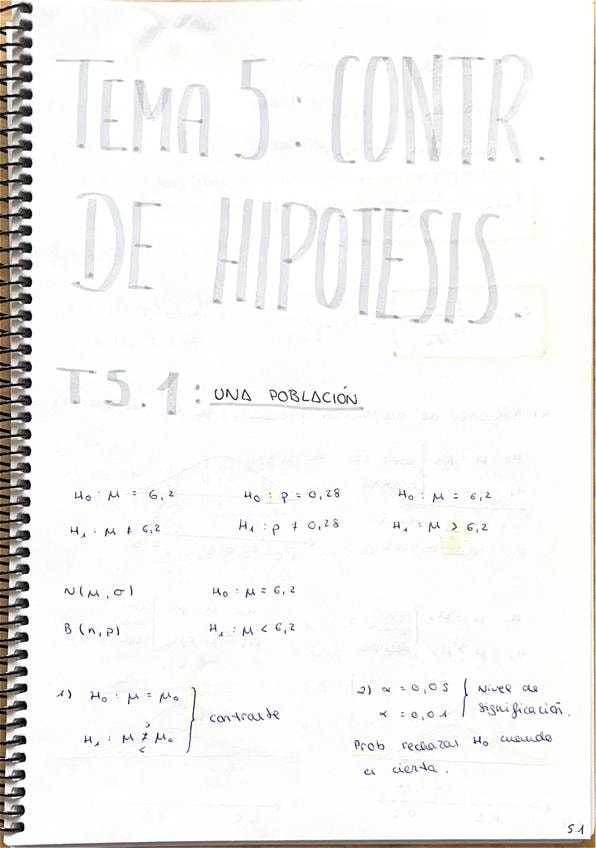 TEMA 5: CONTR.
DE HIPOTESIS.
T5.1: UNA POBLACIÓN
H₀ : μ = 6,2 H₀ : p = 0,28 H₀ : μ = 6,2
H₁ : μ ≠ 6,2 H₁ : p ≠ 0,28 H₁ : μ > 6,2
N(μ, σ) H₀ : μ = 6,2
B(n, p) H₁ : μ < 6,2
1) H₀ : μ = μ₀
H₁ : μ ≠ μ₀
>
<
} contraste
2) α = 0,05
α = 0,01
} Nivel de
significación.
Prob rechazar H₀ cuando
es cierta.
5.1